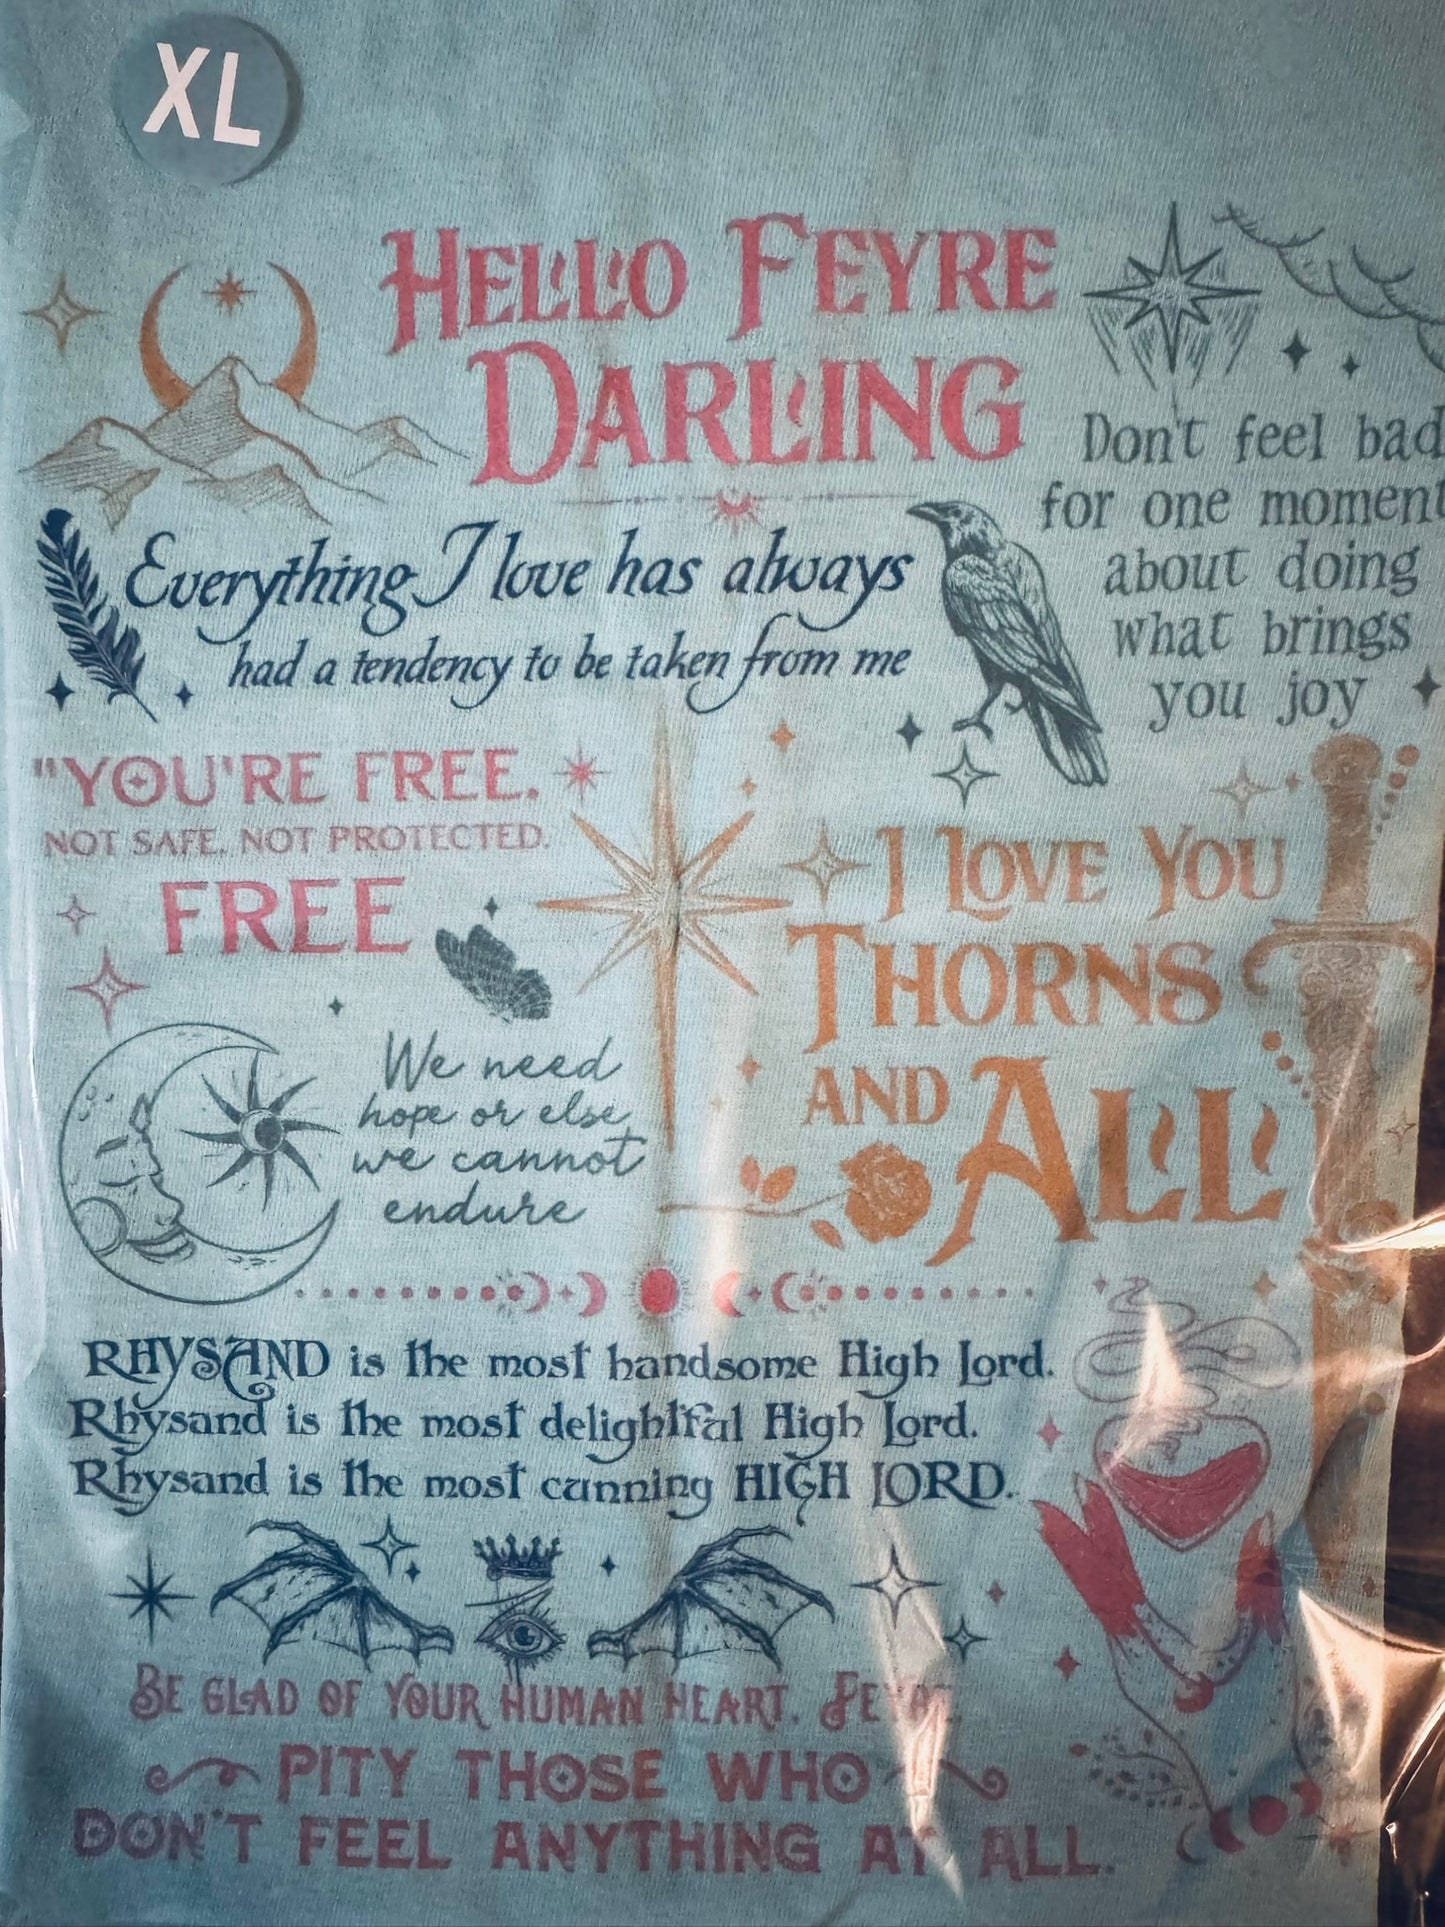 XL
HELLO FEYRE
DARLING
Don't feel bad
for one moment
about doing
what brings
you joy
Everything I love has always
had a tendency to be taken from me
"YOU'RE FREE.
NOT SAFE. NOT PROTECTED.
FREE
I LOVE YOU
THORNS
AND ALL
We need
hope or else
we cannot
endure
RHYSAND is the most handsome High Lord.
Rhysand is the most delightful High Lord.
Rhysand is the most cunning HIGH LORD.
BE GLAD OF YOUR HUMAN HEART.
PITY THOSE WHO
DON'T FEEL ANYTHING AT ALL.